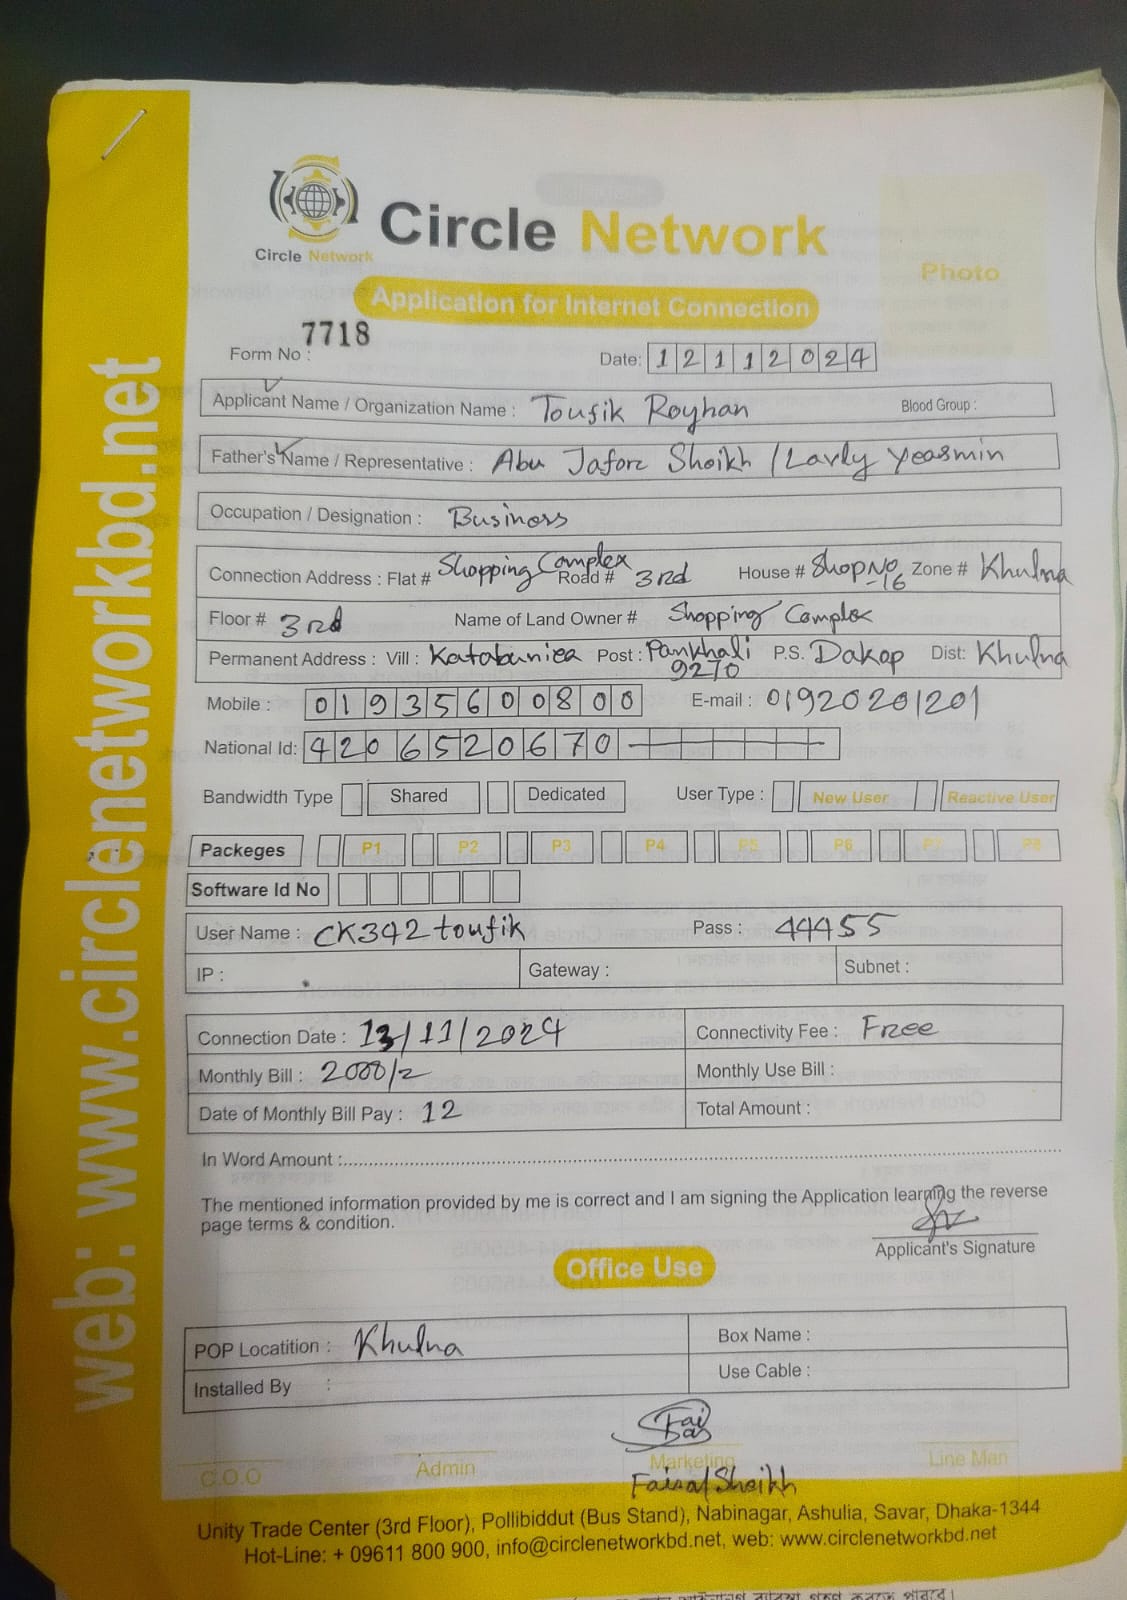 web: www.circlenetworkbd.net
Circle Network
Circle Network
Photo
Application for Internet Connection
Form No : 7718
Date: 12112024
Applicant Name / Organization Name : Toufik Royhan Blood Group :
Father's Name / Representative : Abu Jaforz Shoikh / Lavly Yeasmin
Occupation / Designation : Business
Connection Address : Flat # Shopping Complex Road # 3rd House # Shop No -16 Zone # Khulna
Floor # 3rd Name of Land Owner # Shopping Complex
Permanent Address : Vill : Katabunia Post : Pankhali 9270 P.S. Dakop Dist: Khulna
Mobile : 01935600800 E-mail : 01920201201
National Id: 4206520670
Bandwidth Type Shared Dedicated User Type : New User Reactive User
Packeges P1 P2 P3 P4 P5 P6 P7 P8
Software Id No
User Name : CK342toufik Pass : 44455
IP : Gateway : Subnet :
Connection Date : 13/11/2024 Connectivity Fee : Free
Monthly Bill : 2000/= Monthly Use Bill :
Date of Monthly Bill Pay : 12 Total Amount :
In Word Amount :
The mentioned information provided by me is correct and I am signing the Application learning the reverse
page terms & condition.
Applicant's Signature
Office Use
POP Locatition : Khulna Box Name :
Installed By : Use Cable :
C.O.O Admin Marketing Line Man
Faisal Sheikh
Unity Trade Center (3rd Floor), Pollibiddut (Bus Stand), Nabinagar, Ashulia, Savar, Dhaka-1344
Hot-Line: + 09611 800 900, info@circlenetworkbd.net, web: www.circlenetworkbd.net